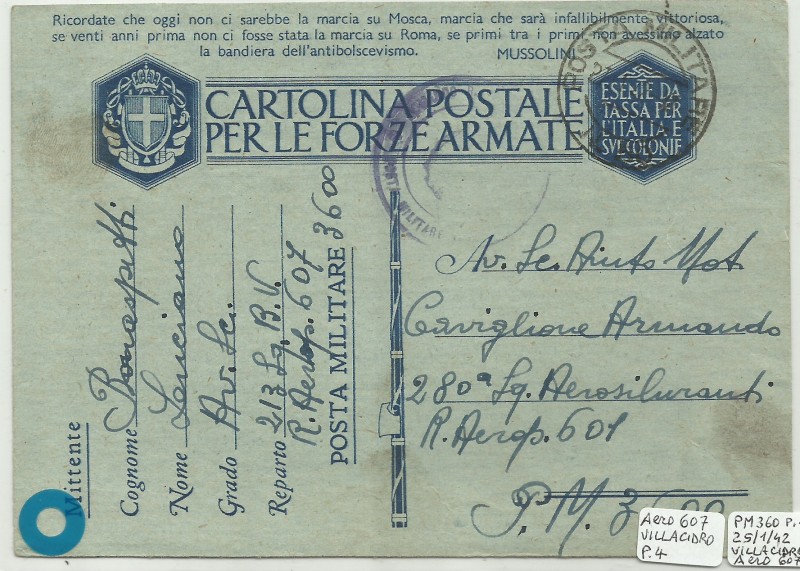 Ricordate che oggi non ci sarebbe la marcia su Mosca, marcia che sarà infallibilmente vittoriosa,
se venti anni prima non ci fosse stata la marcia su Roma, se primi tra i primi non avessimo alzato
la bandiera dell'antibolscevismo. MUSSOLINI
POSTA MILITARE
CARTOLINA POSTALE
PER LE FORZE ARMATE
ESENTE DA
TASSA PER
L'ITALIA E
SUE COLONIE
MILITARE
Mittente
Cognome Bonaspetti
Nome Luciano
Grado Av. Sc.
Reparto 213 Sq. B. V.
R. Aerop. 607
POSTA MILITARE 3600
Av. Sc. Aiuto Mot
Caviglione Armando
280ª Sq. Aerosiluranti
R. Aerop. 601
P. M. 3600
AERO 607
VILLACIDRO
P. 4
PM 360 P.
25/1/42
VILLACIDRO
AERO 607